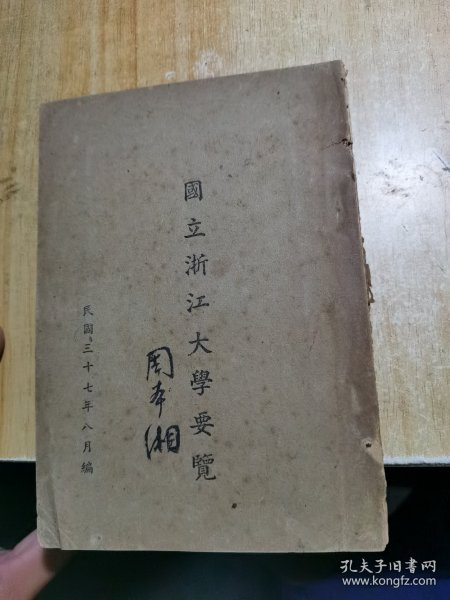 國立浙江大學要覽
周本湘
民國三十七年八月編
孔夫子旧书网
www.kongfz.com